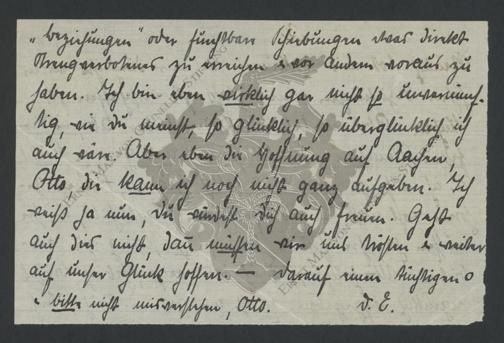 „Beziehungen" oder furchtbare Schiebungen etwas direkt
Strengverbotenes zu erreichen & vor andern voraus zu
haben. Ich bin eben wirklich gar nicht so unvernünf-
tig, wie du meinst, so glücklich, so überglücklich ich
auch wäre. Aber eben die Hoffnung auf Aachen,
Otto die kann ich noch nicht ganz aufgeben. Ich
weiß ja nun, du würdest dich auch freuen. Geht
auch dies nicht, dann müssen wir uns trösten & weiter
auf unser Glück hoffen. — Darauf einen tüchtigen o
& bitte nicht misverstehen, Otto. D. E.